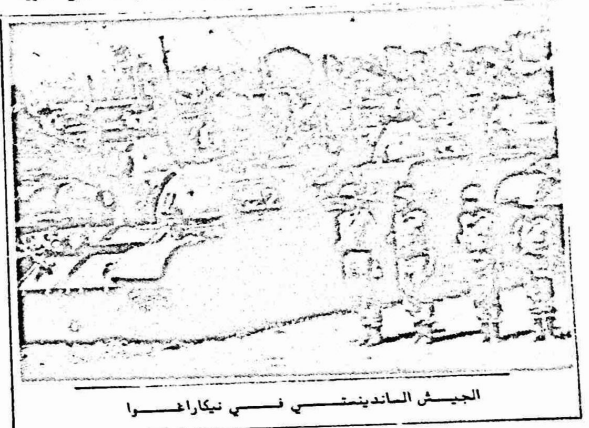 الجيش الساندينستي في نيكاراغوا